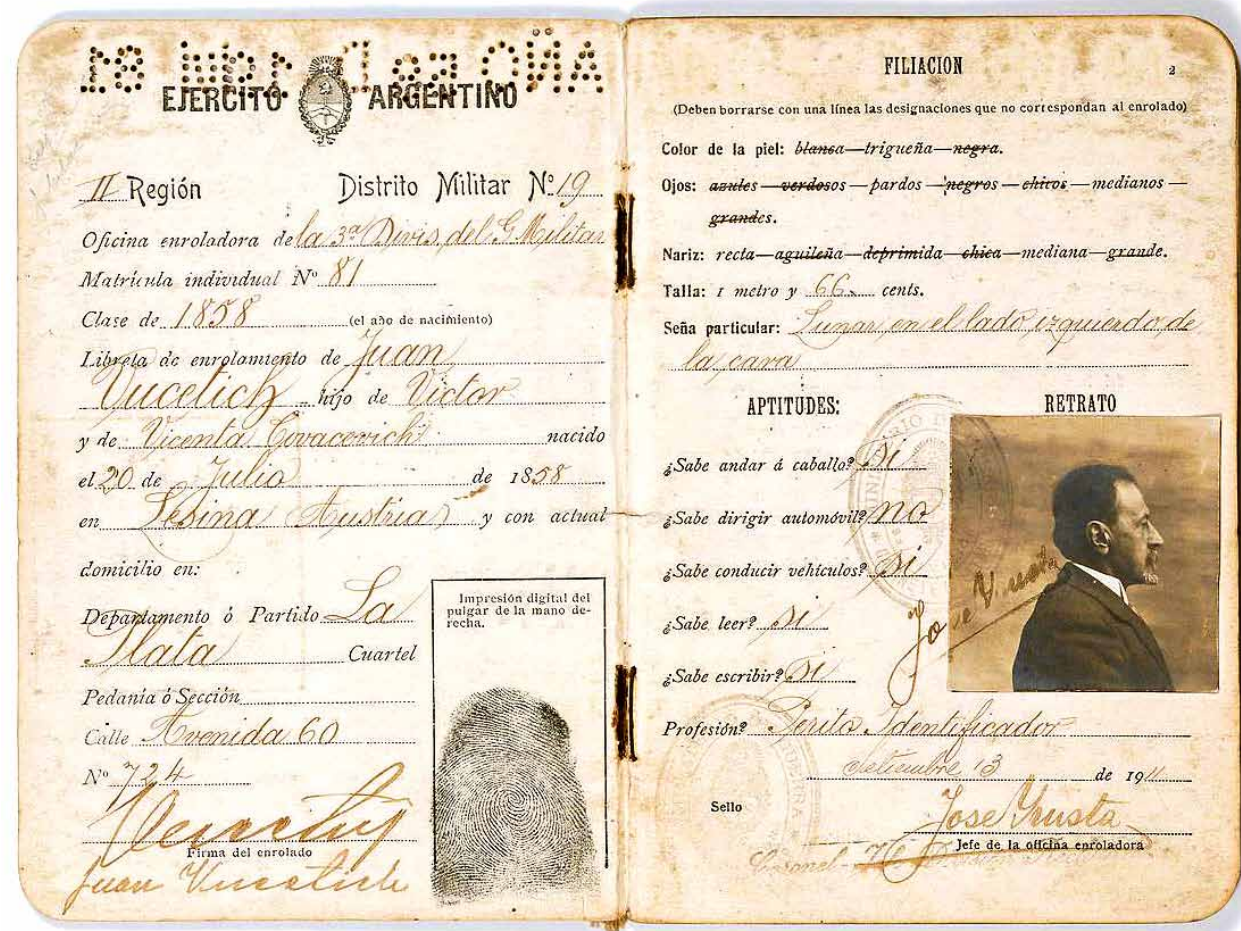 EJERCITO ARGENTINO
II Región Distrito Militar Nº 19
Oficina enroladora de la 3ª Divis. del G. Militar
Matrícula individual Nº 81
Clase de 1858 (el año de nacimiento)
Libreta de enrolamiento de Juan
Vucetich hijo de Victor
y de Vicenta Covacevich nacido
el 20 de Julio de 1858
en Lesina (Austria) y con actual
domicilio en:
Departamento ó Partido La
Plata Cuartel
Pedanía ó Sección
Calle Avenida 60
Nº 724
Firma del enrolado
Juan Vucetich
Impresión digital del
pulgar de la mano de-
recha.
FILIACION 2
(Deben borrarse con una línea las designaciones que no correspondan al enrolado)
Color de la piel: blanca—trigueña—negra.
Ojos: azules—verdosos—pardos—negros—chicos—medianos—
grandes.
Nariz: recta—aguileña—deprimida—chica—mediana—grande.
Talla: 1 metro y 66 cents.
Seña particular: Lunar en el lado izquierdo de
la cara
APTITUDES: RETRATO
¿Sabe andar á caballo? Si
¿Sabe dirigir automóvil? no
¿Sabe conducir vehículos? Si
¿Sabe leer? Si
¿Sabe escribir? Si
Profesión? Perito Identificador
Setiembre 13 de 1911
Sello
Jefe de la oficina enroladora